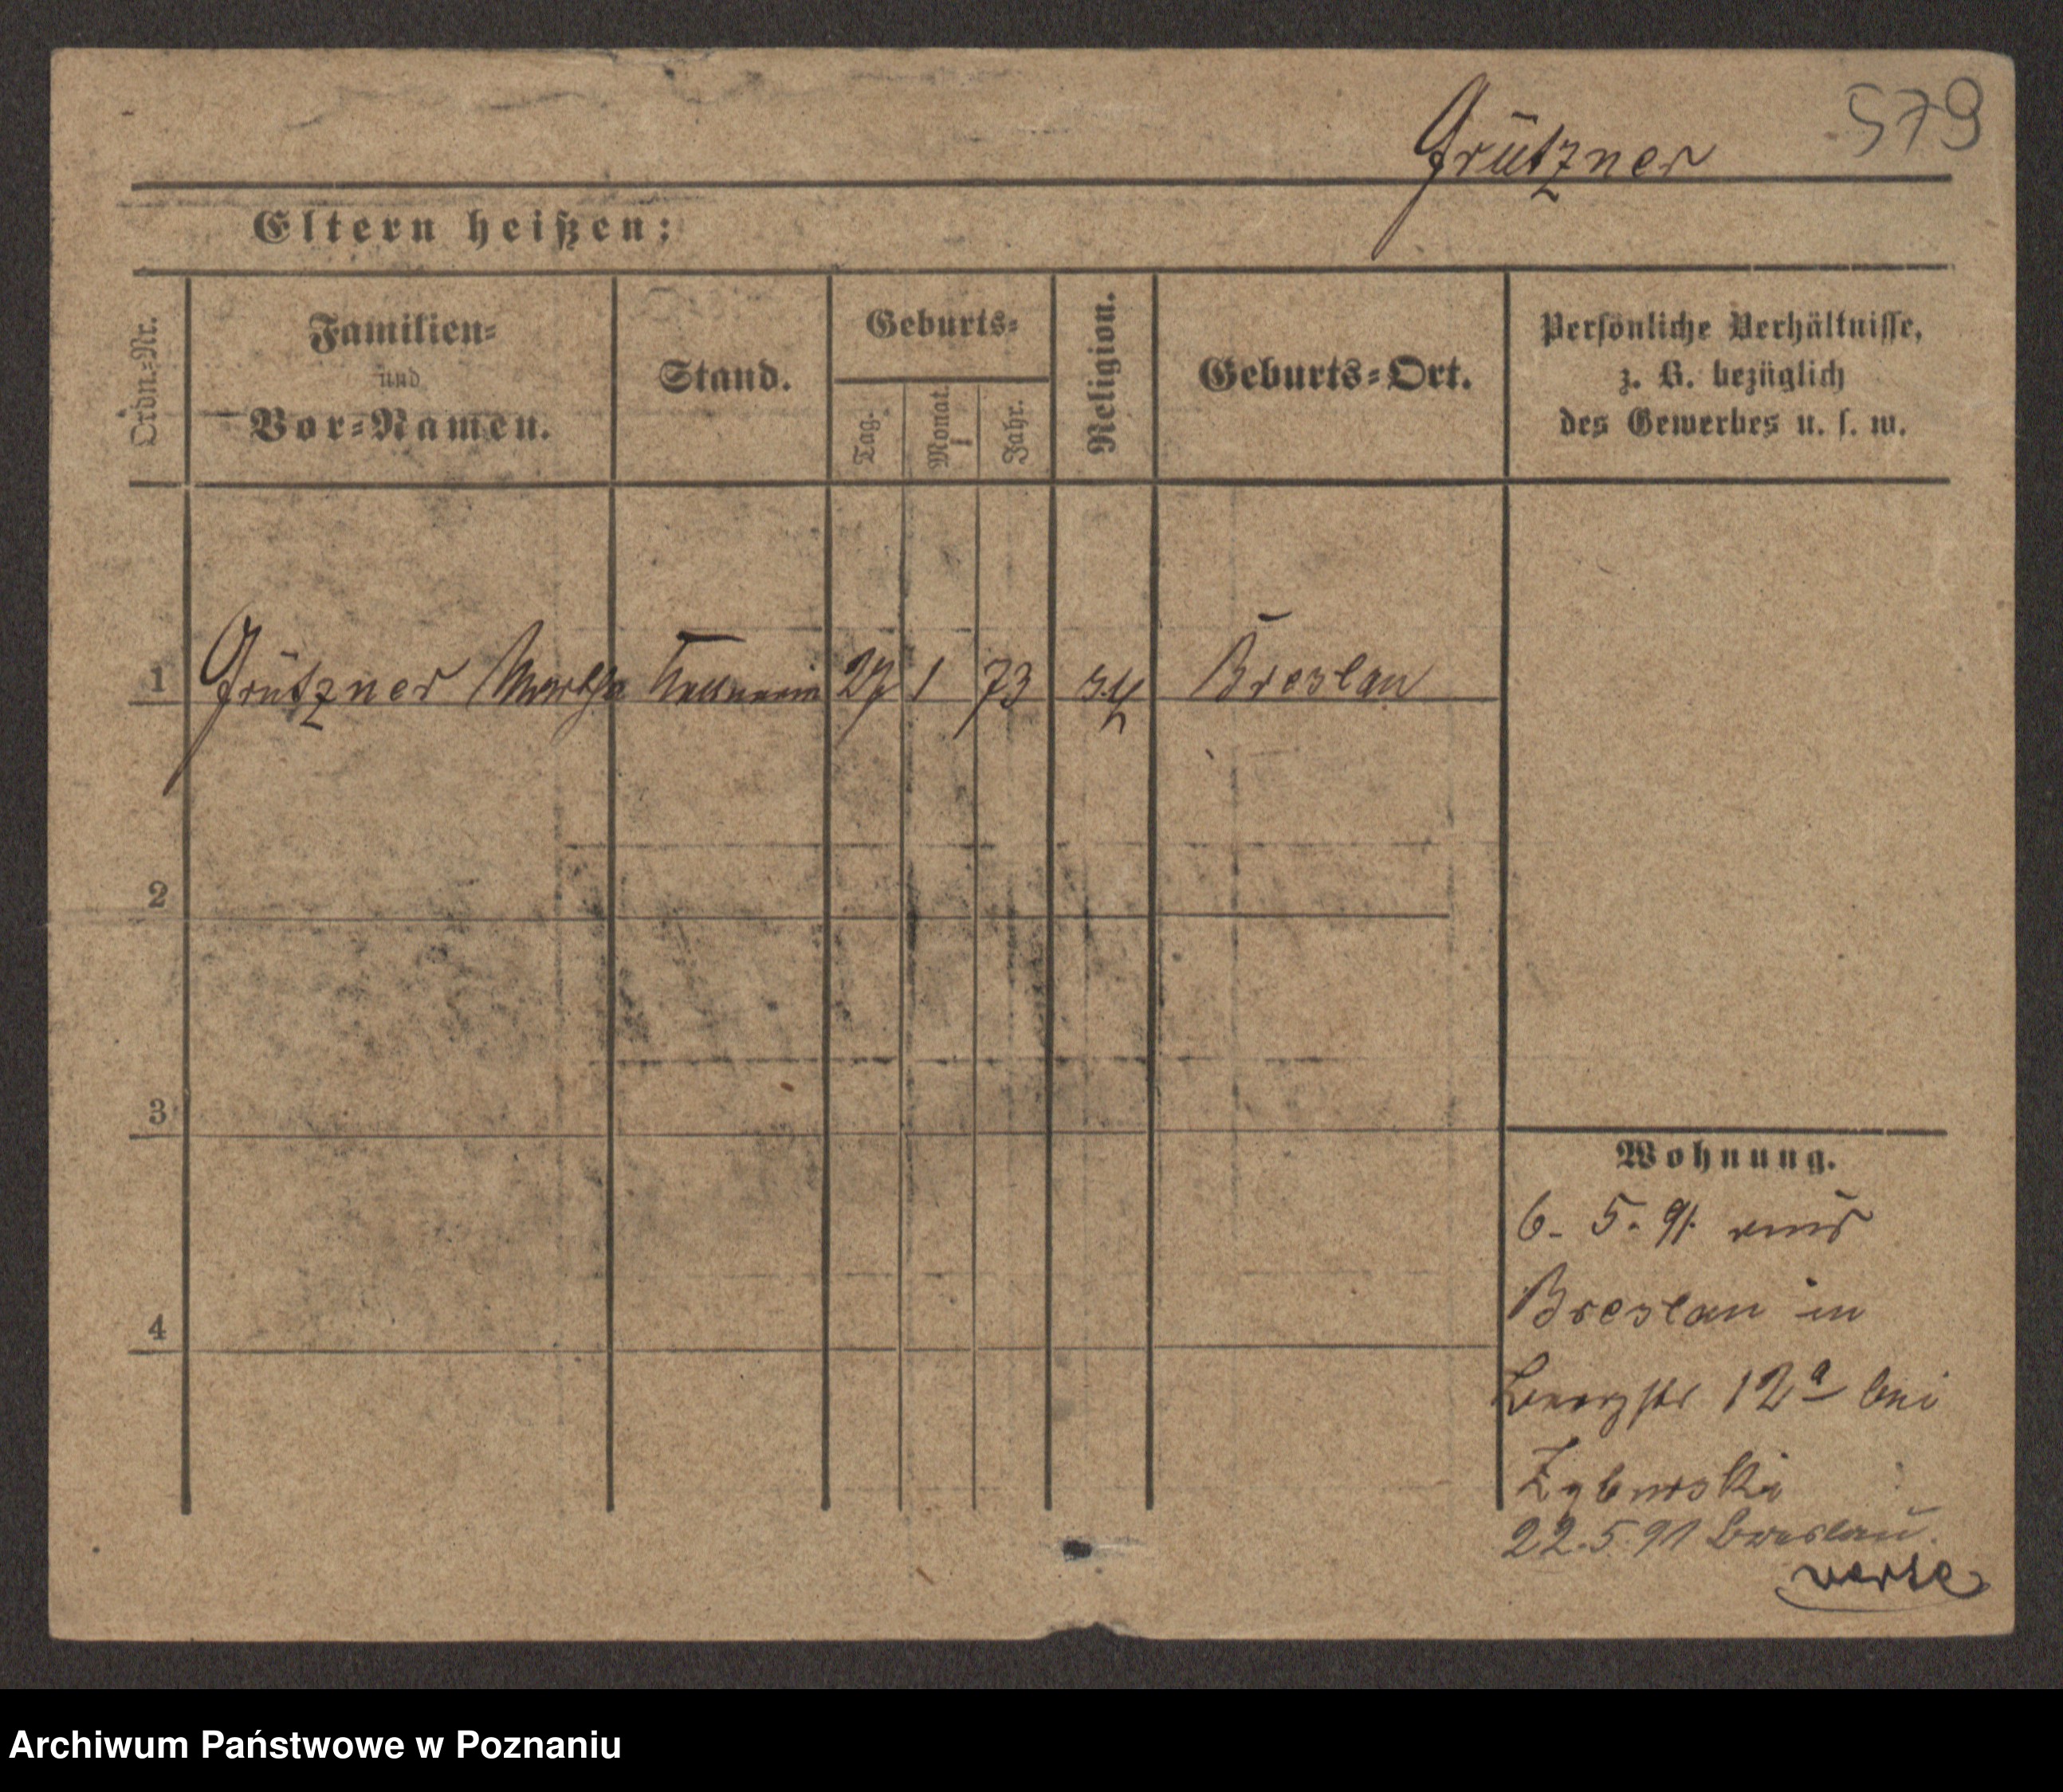 579
Grützner
Eltern heißen:
Ordn.-Nr.
Familien-
und
Vor-Namen.
Stand.
Geburts-
Tag.
Monat.
Jahr.
Religion.
Geburts-Ort.
Persönliche Verhältnisse,
z. B. bezüglich
des Gewerbes u. s. w.
1 Grützner Martha Kellnerin 27 1 73 Breslau
2
3
4
Wohnung.
6. 5. 91. aus
Breslau in
12a bei
Zyburski
22.5.91 Breslau.
verte
Archiwum Państwowe w Poznaniu